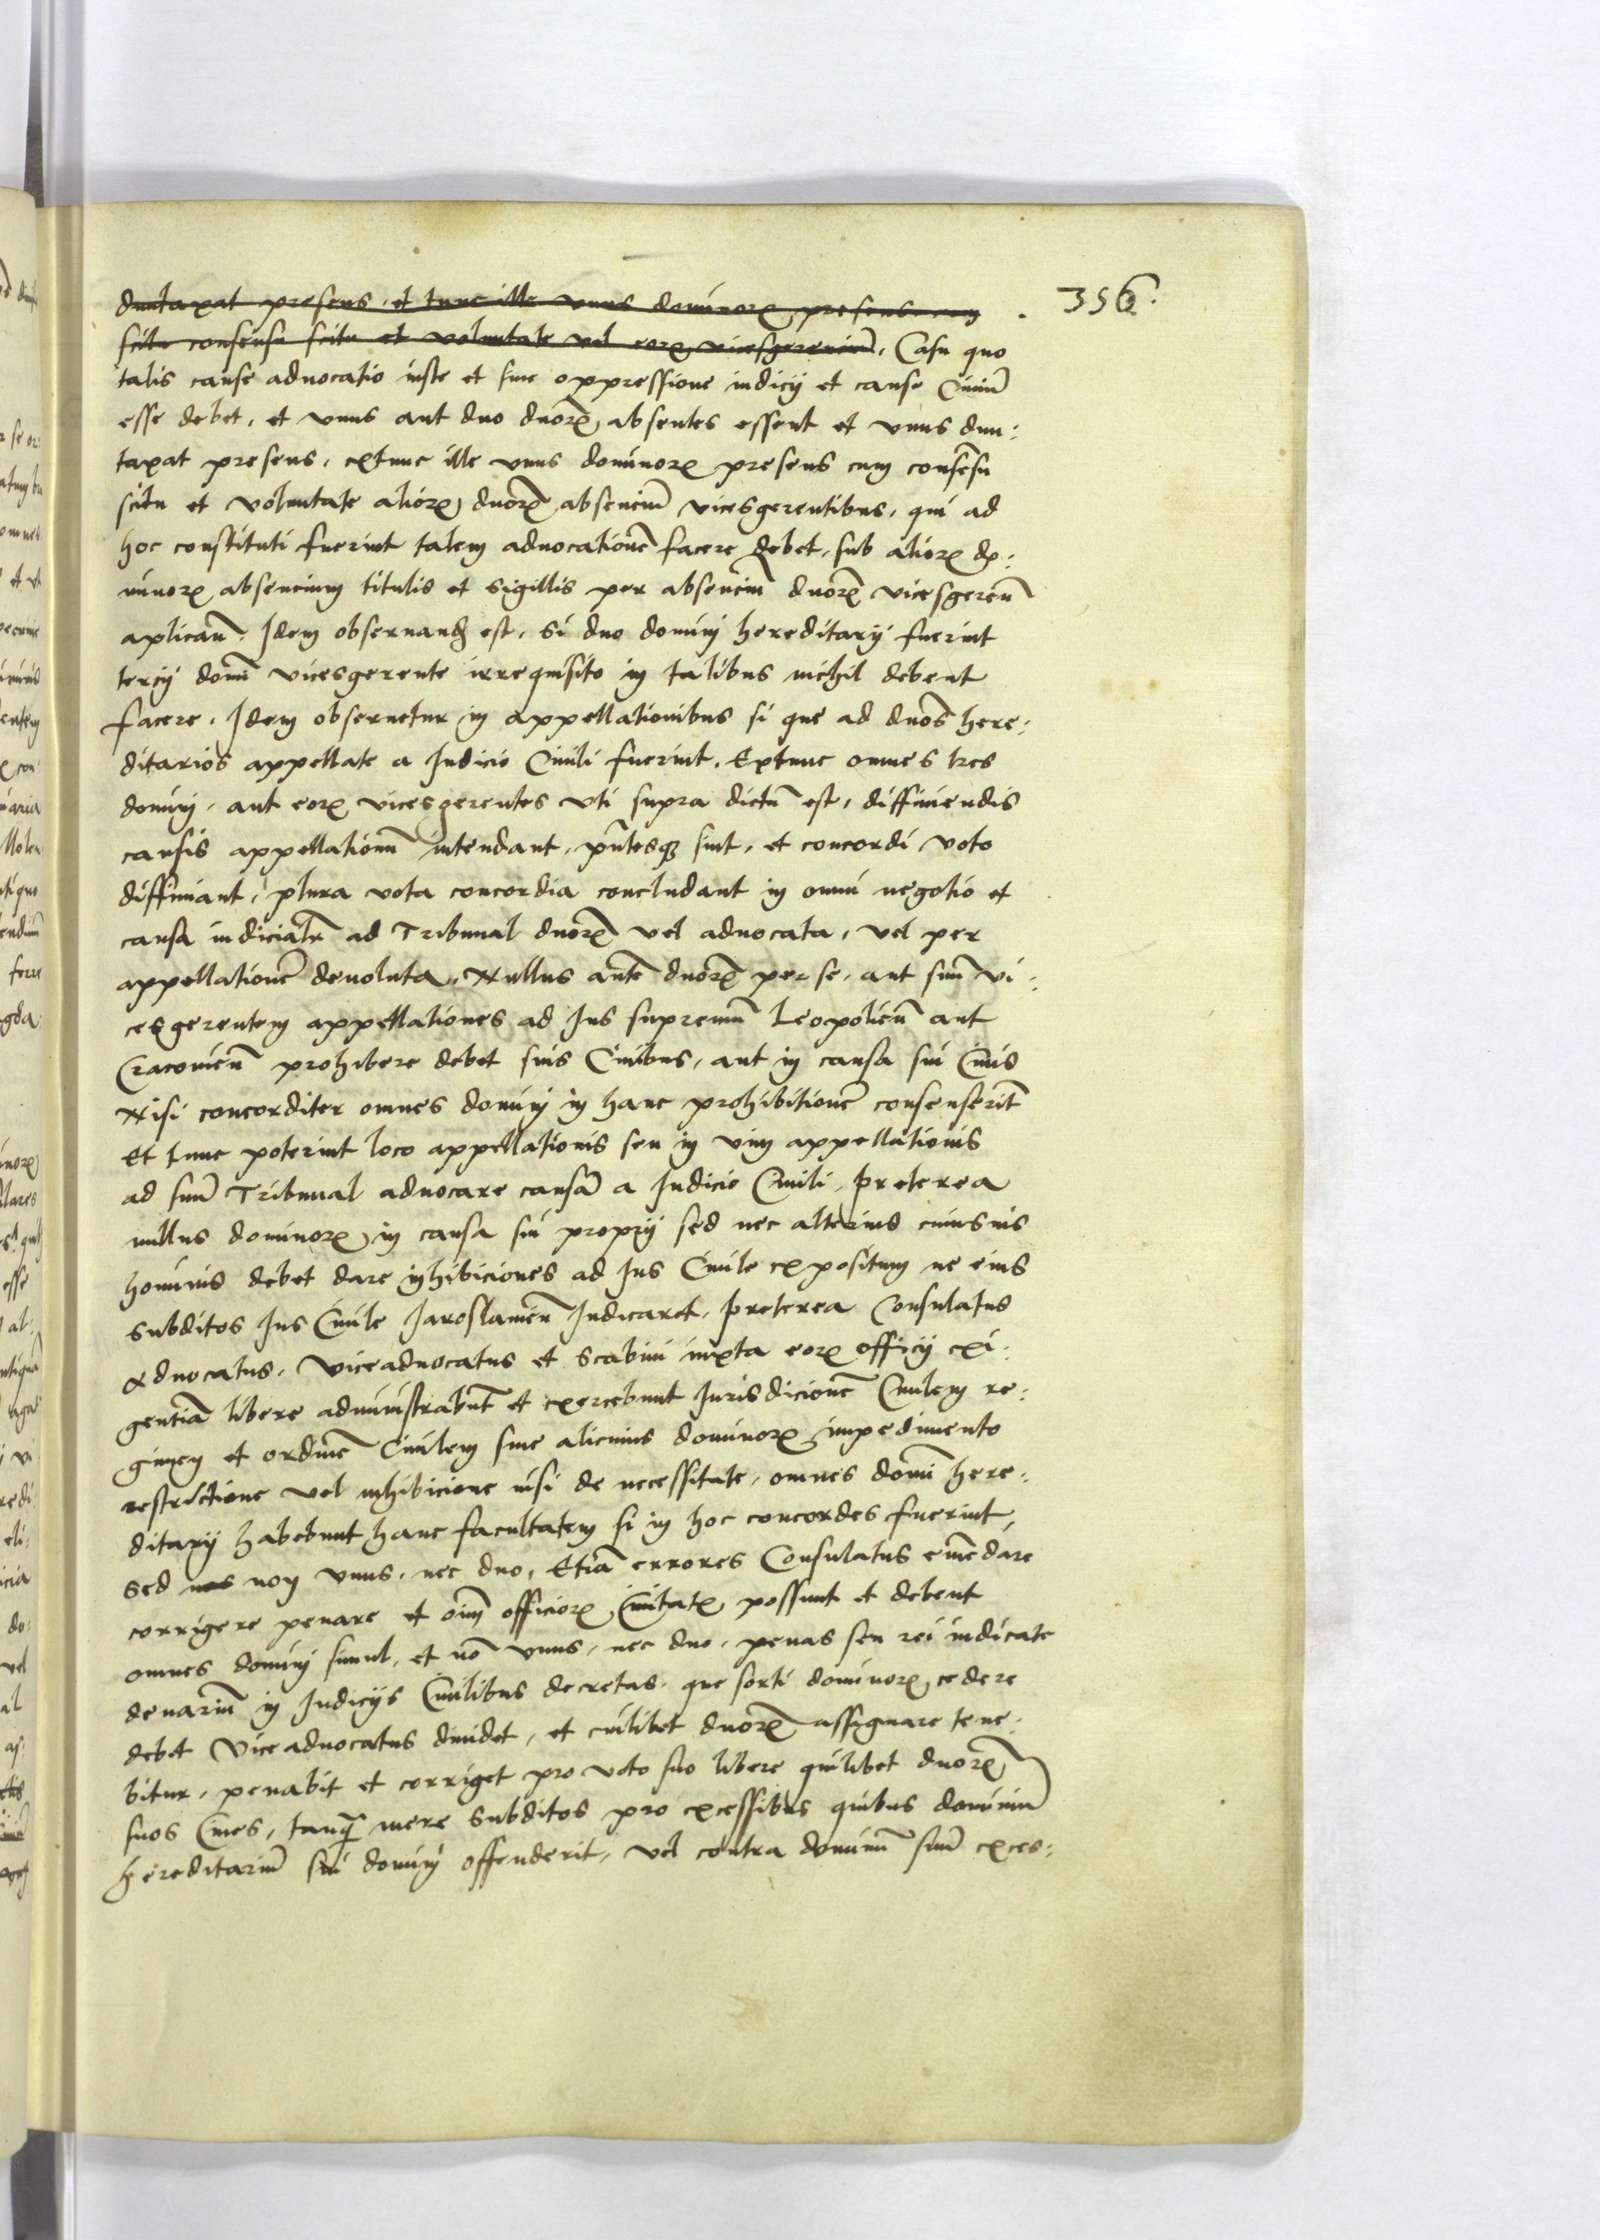 356.
duntaxat presens, et tunc ille unus dominorꝝ presens cum
scitu consensu scitu et voluntate vel eorꝝ vicesgerenciū, Casu quo
talis cause aduocatio iuste et sine oppressione iudicij et cause Ciuiū
esse debet, et vnus aut duo dnorꝝ absentes essent et vnus dun:
taxat presens, extunc ille vnus dominorꝝ presens cum consēsu
scitu et voluntate aliorꝝ dnorꝝ absenciū vicesgerentibus, qui ad
hoc constituti fuerint talem aduocationē facere debet, sub aliorꝝ do:
minorꝝ absencium titulis et sigillis per absenciū dnorꝝ vicesgerēn
aplicañ. Idem obseruanđ est, si duo domini hereditarij fuerint
tercij domī vicesgerente irrequisito in talibus nichil debent
facere. Idem obseruetur in appellationibus si que ad dnos here:
ditarios appellate a Iudicio Ciuili fuerint. Extunc omnes tres
domini, aut eorꝝ vicesgerentes vti supra dictū est, diffiniendis
causis appellationū intendant, pn̄tesqꝫ sint, et concordi voto
diffiniant, plura vota concordia concludant in omni negotio et
causa iudicialr ad Tribunal dnorꝝ vel aduocata, vel per
appellationē deuoluta. Nullus autē dnorꝝ per se, aut suū vi:
cesgerentem appellationes ad Ius supremū Leopolieñ aut
Cracouieñ prohibere debet suis Ciuibus, aut in causa sui Ciuis
Nisi concorditer omnes domini in hanc prohibitionē consenserīt
Et tunc poterint loco appellationis seu in vim appellationis
ad suū Tribunal aduocare causā a Iudicio Ciuili, Preterea
nullus dominorꝝ in causa sui proprij sed nec alterius cuiusuis
hominis debet dare inhibiciones ad Ius Ciuile expositum ne eius
subditos Ius Ciuile Iaroslauieñ Iudicaret. Preterea Consulatus
Aduocatus, Viceaduocatus et Scabini iuxta eorꝝ officij exi:
gentiā libere administrabūt et exercebunt Iurisdicionē Ciuilem re:
gimen et ordinē Ciuilem sine alicuius dominorꝝ impedimento
restrictione vel inhibicione nisi de necessitate, omnes domī here:
ditarij habebunt hanc facultatem si in hoc concordes fuerint,
sed non vnus, nec duo, Etiā errores Consulatus emēdare
corrigere penare et oīm officiorꝝ Ciuitatꝭ possunt et debent
omnes domini simul, et nō vnus, nec duo, penas seu rei iudicate
denariū in Iudicijs Ciuilibus decretas, que sorti dominorꝝ cedere
debet Viceaduocatus diuidet, et cuilibet dnorꝝ assignare tene:
bitur, penabit et corriget pro voto suo libere quilibet dnorꝝ
suos Ciues, tanqꝫ mere subditos pro excessibus quibus dominiū
hereditariū sui domini offenderit, vel contra dominū suū exces: